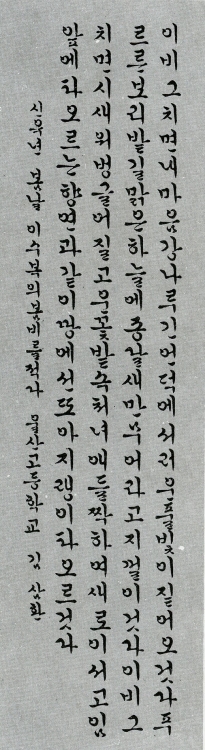 이비그치면내마음강나루긴언덕에서러운풀빛이짙어오것다푸
르른보리밭길맑은하늘에종달새만무어라고지껄이것다이비그
치면시새워벙글어질고운꽃밭속처녀애들짝하여새로이서고임
앞에타오르는향연과같이땅에선또아지랭이타오르것다
신유년 봄날 이수복의봄비를적다 울산고등학교 김삼환